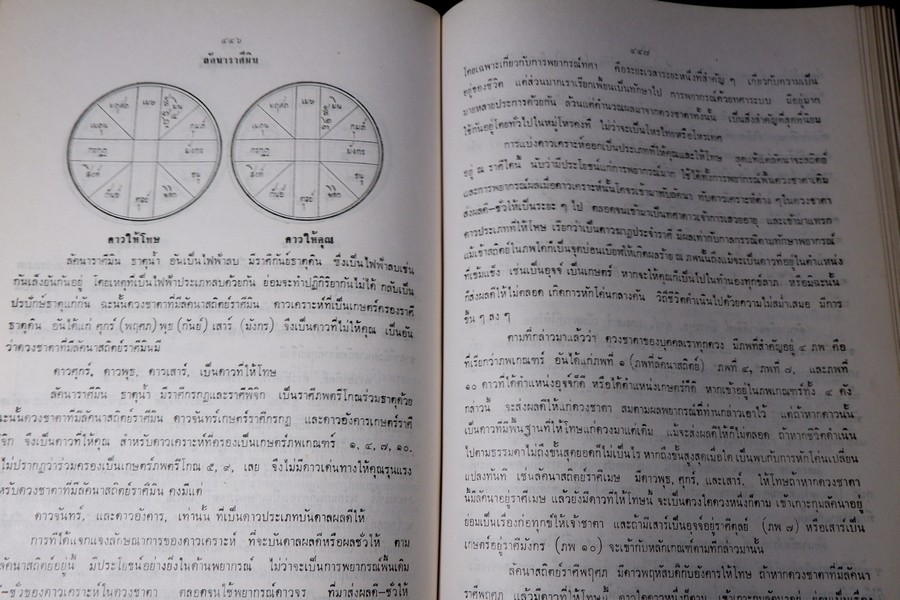 ๔๔๖
ลัคนาราศีมิน
เมษ
พฤศภ
เมถุน
กรกฎ
สิงห์
กันย์
ตุลย์
พิจิก
ธนู
มังกร
กุมภ์
มีน
เมษ
พฤศภ
เมถุน
กรกฎ
สิงห์
กันย์
ตุลย์
พิจิก
ธนู
มังกร
กุมภ์
มีน
ดาวให้โทษ ดาวให้คุณ
ลัคนาราศีมิน ธาตุน้ำ อันเป็นไฟฟ้าลบ มีราศีกันย์ธาตุดิน ซึ่งเป็นไฟฟ้าลบเช่น
กันเล็งยันกันอยู่ โดยเหตุที่เป็นไฟฟ้าประเภทลบด้วยกัน ย่อมจะทำปฏิกิริยากันไม่ได้ กลับเป็น
ปรปักษ์ธาตุแก่กัน ฉะนั้นดวงชาตาที่มีลัคนาสถิตย์ราศีมิน ดาวเคราะห์ที่เป็นเกษตร์ครองราศี
ธาตุดิน อันได้แก่ ศุกร์ (พฤศภ) พุธ (กันย์) เสาร์ (มังกร) จึงเป็นดาวที่ไม่ให้คุณ เป็นอัน
ว่าดวงชาตาที่มีลัคนาสถิตย์ราศีมินมี
ดาวศุกร์, ดาวพุธ, ดาวเสาร์, เป็นดาวที่ให้โทษ
ลัคนาราศีมิน ธาตุน้ำ มีราศีกรกฎและราศีพิจิก เป็นราศีภพตรีโกณร่วมธาตุด้วย
ฉะนั้นดวงชาตาที่มีลัคนาสถิตย์ราศีมิน ดาวจันทร์เกษตร์ราศีกรกฎ และดาวอังคารเกษตร์ราศี
จิก จึงเป็นดาวที่ให้คุณ สำหรับดาวเคราะห์ที่ครองเป็นเกษตร์ภพเกณฑร์ ๑, ๔, ๗, ๑๐.
ไม่ปรากฏว่าร่วมครองเป็นเกษตร์ภพตรีโกณ ๕, ๙, เลย จึงไม่มีดาวเด่นทางให้คุณรุนแรง
หรับดวงชาตาที่มีลัคนาสถิตย์ราศีมิน คงมีแต่
ดาวจันทร์, และดาวอังคาร, เท่านั้น ที่เป็นดาวประเภทบันดาลผลดีให้
การที่ได้แจกแจงลักษณาการของดาวเคราะห์ ที่จะบันดาลผลดีหรือผลชั่วให้ ตาม
ลัคนาสถิตย์อยู่นี้ มีประโยชน์อย่างยิ่งในด้านพยากรณ์ ไม่ว่าจะเป็นการพยากรณ์พื้นเดิม
-ชั่วของดาวเคราะห์ในดวงชาตา ตลอดจนใช้พยากรณ์ดาวจร ที่มาส่งผลดี-ชั่วให้
๔๔๗
โดยเฉพาะเกี่ยวกับการพยากรณ์ทศา คือระยะเวลาระยะหนึ่งที่สำคัญ ๆ เกี่ยวกับความเป็น
อยู่ของชีวิต แต่ส่วนมากเราเรียกเพี้ยนเป็นทักษาไป การพยากรณ์ด้วยทศาระบบ มีอยู่มาก
มายหลายประการด้วยกัน ล้วนแต่คำนวณผลมาจากดวงชาตาทั้งนั้น เป็นสิ่งสำคัญที่สุดที่นิยม
ใช้กันอยู่โดยทั่วไปในหมู่โหรคงที่ ไม่ว่าจะเป็นโหรไทยหรือโหรเทศ
การแบ่งดาวเคราะห์ออกเป็นประเภทที่ให้คุณและให้โทษ สุดแท้แต่ลัคนาจะสถิตย์
อยู่ ณ ราศีใดนี้ นับว่ามีประโยชน์แก่การพยากรณ์มาก ใช้ได้ทั้งการพยากรณ์พื้นดวงชาตาเดิม
และการพยากรณ์ผลเมื่อดาวเคราะห์นั้นโคจรเข้ามาทับลัคนา ทับดาวเคราะห์ต่าง ๆ ในดวงชาตา
ส่งผลดี-ชั่วให้เป็นระยะ ๆ ไป ตลอดจนเข้ามาเป็นทศาดาวเจ้าการเสวยอายุ และเข้ามาแทรก
ดาวประเภทที่ให้โทษ เรียกว่าเป็นดาวฆาฏประจำราศี มีผลเท่ากับกาลกรรณีตามทักษาพยากรณ์
แม้เข้าสถิตย์ในภพใดก็เป็นจุดบ่อนเบียฬให้เกิดผลร้าย ณ ภพนั้นถึงแม้จะเป็นดาวที่อยู่ในตำแหน่ง
ที่เข้มแข็ง เช่นเป็นอุจจ์ เป็นเกษตร์ หากจะให้คุณก็เป็นไปในทำนองทุกขลาภ หรือมิฉะนั้น
ก็ส่งผลให้ไม่ตลอด เกิดการหักโค่นกลางคัน วิถีชีวิตดำเนินไปด้วยความไม่สม่ำเสมอ มีการ
ขึ้น ๆ ลง ๆ
ตามที่กล่าวมาแล้วว่า ดวงชาตาของบุคคลเราทุกดวง มีภพที่สำคัญอยู่ ๔ ภพ คือ
ที่เรียกว่าภพเกณฑร์ อันได้แก่ภพที่ ๑ (ภพที่ลัคนาสถิตย์) ภพที่ ๔, ภพที่ ๗, และภพที่
๑๐ ดาวที่ได้ตำแหน่งอุจจ์ก็ดี หรือได้ตำแหน่งเกษตร์ก็ดี หากเข้าอยู่ในภพเกณฑร์ทั้ง ๔ ดัง
กล่าวนี้ จะส่งผลดีให้แก่ดวงชาตา สมตามผลพยากรณ์ที่ท่านกล่าวเอาไว้ แต่ถ้าหากดาวนั้น
เป็นดาวที่มีพื้นฐานที่ให้โทษแก่ดวงมาแต่เดิม แม้จะส่งผลดีให้ก็ไม่ตลอด ถ้าหากชีวิตดำเนิน
ไปตามธรรมดาไม่ถึงขั้นสุดยอดก็ไม่เป็นไร หากถึงขั้นสูงสุดเมื่อใด เป็นพบกับการหักโค่นเปลี่ยน
แปลงทันที เช่นดวงชาตาที่มีลัคนาสถิตย์ราศีเมษ มีดาวพุธ, ศุกร์, และเสาร์, ให้โทษถ้าหากดวงชาตา
นี้มีลัคนาอยู่ราศีเมษ แล้วยังมีดาวที่ให้โทษนี้ จะเป็นดวงใดดวงหนึ่งก็ตาม เข้าเกาะกุมลัคนาอยู่
ย่อมเป็นเรื่องก่อทุกข์ให้เจ้าชาตา และถ้ามีเสาร์เป็นอุจจอยู่ราศีตุลย์ (ภพ ๗) หรือเสาร์เป็น
เกษตร์อยู่ราศีมังกร (ภพ ๑๐) จะเข้ากับหลักเกณฑ์ตามที่กล่าวมานั้น
ลัคนาสถิตย์ราศีพฤศภ มีดาวพฤหัสบดีกับอังคารให้โทษ ถ้าหากดวงชาตาที่มีลัคนา
ราศีพฤศภ แล้วมีดาวที่ให้โทษนี้ ดาวใดดาวหนึ่งก็ตาม เข้าเกาะกุมลัคนาอยู่ ย่อมเป็นเรื่อง